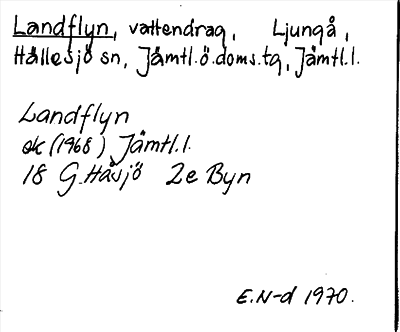 Landflyn, vattendrag, Ljungå,
Hållesjö sn, Jämtl.ö.doms.tg, Jämtl.l.
Landflyn
ek (1968) Jämtl.l.
18 G Håsjö 2e Byn
E.N-d 1970.